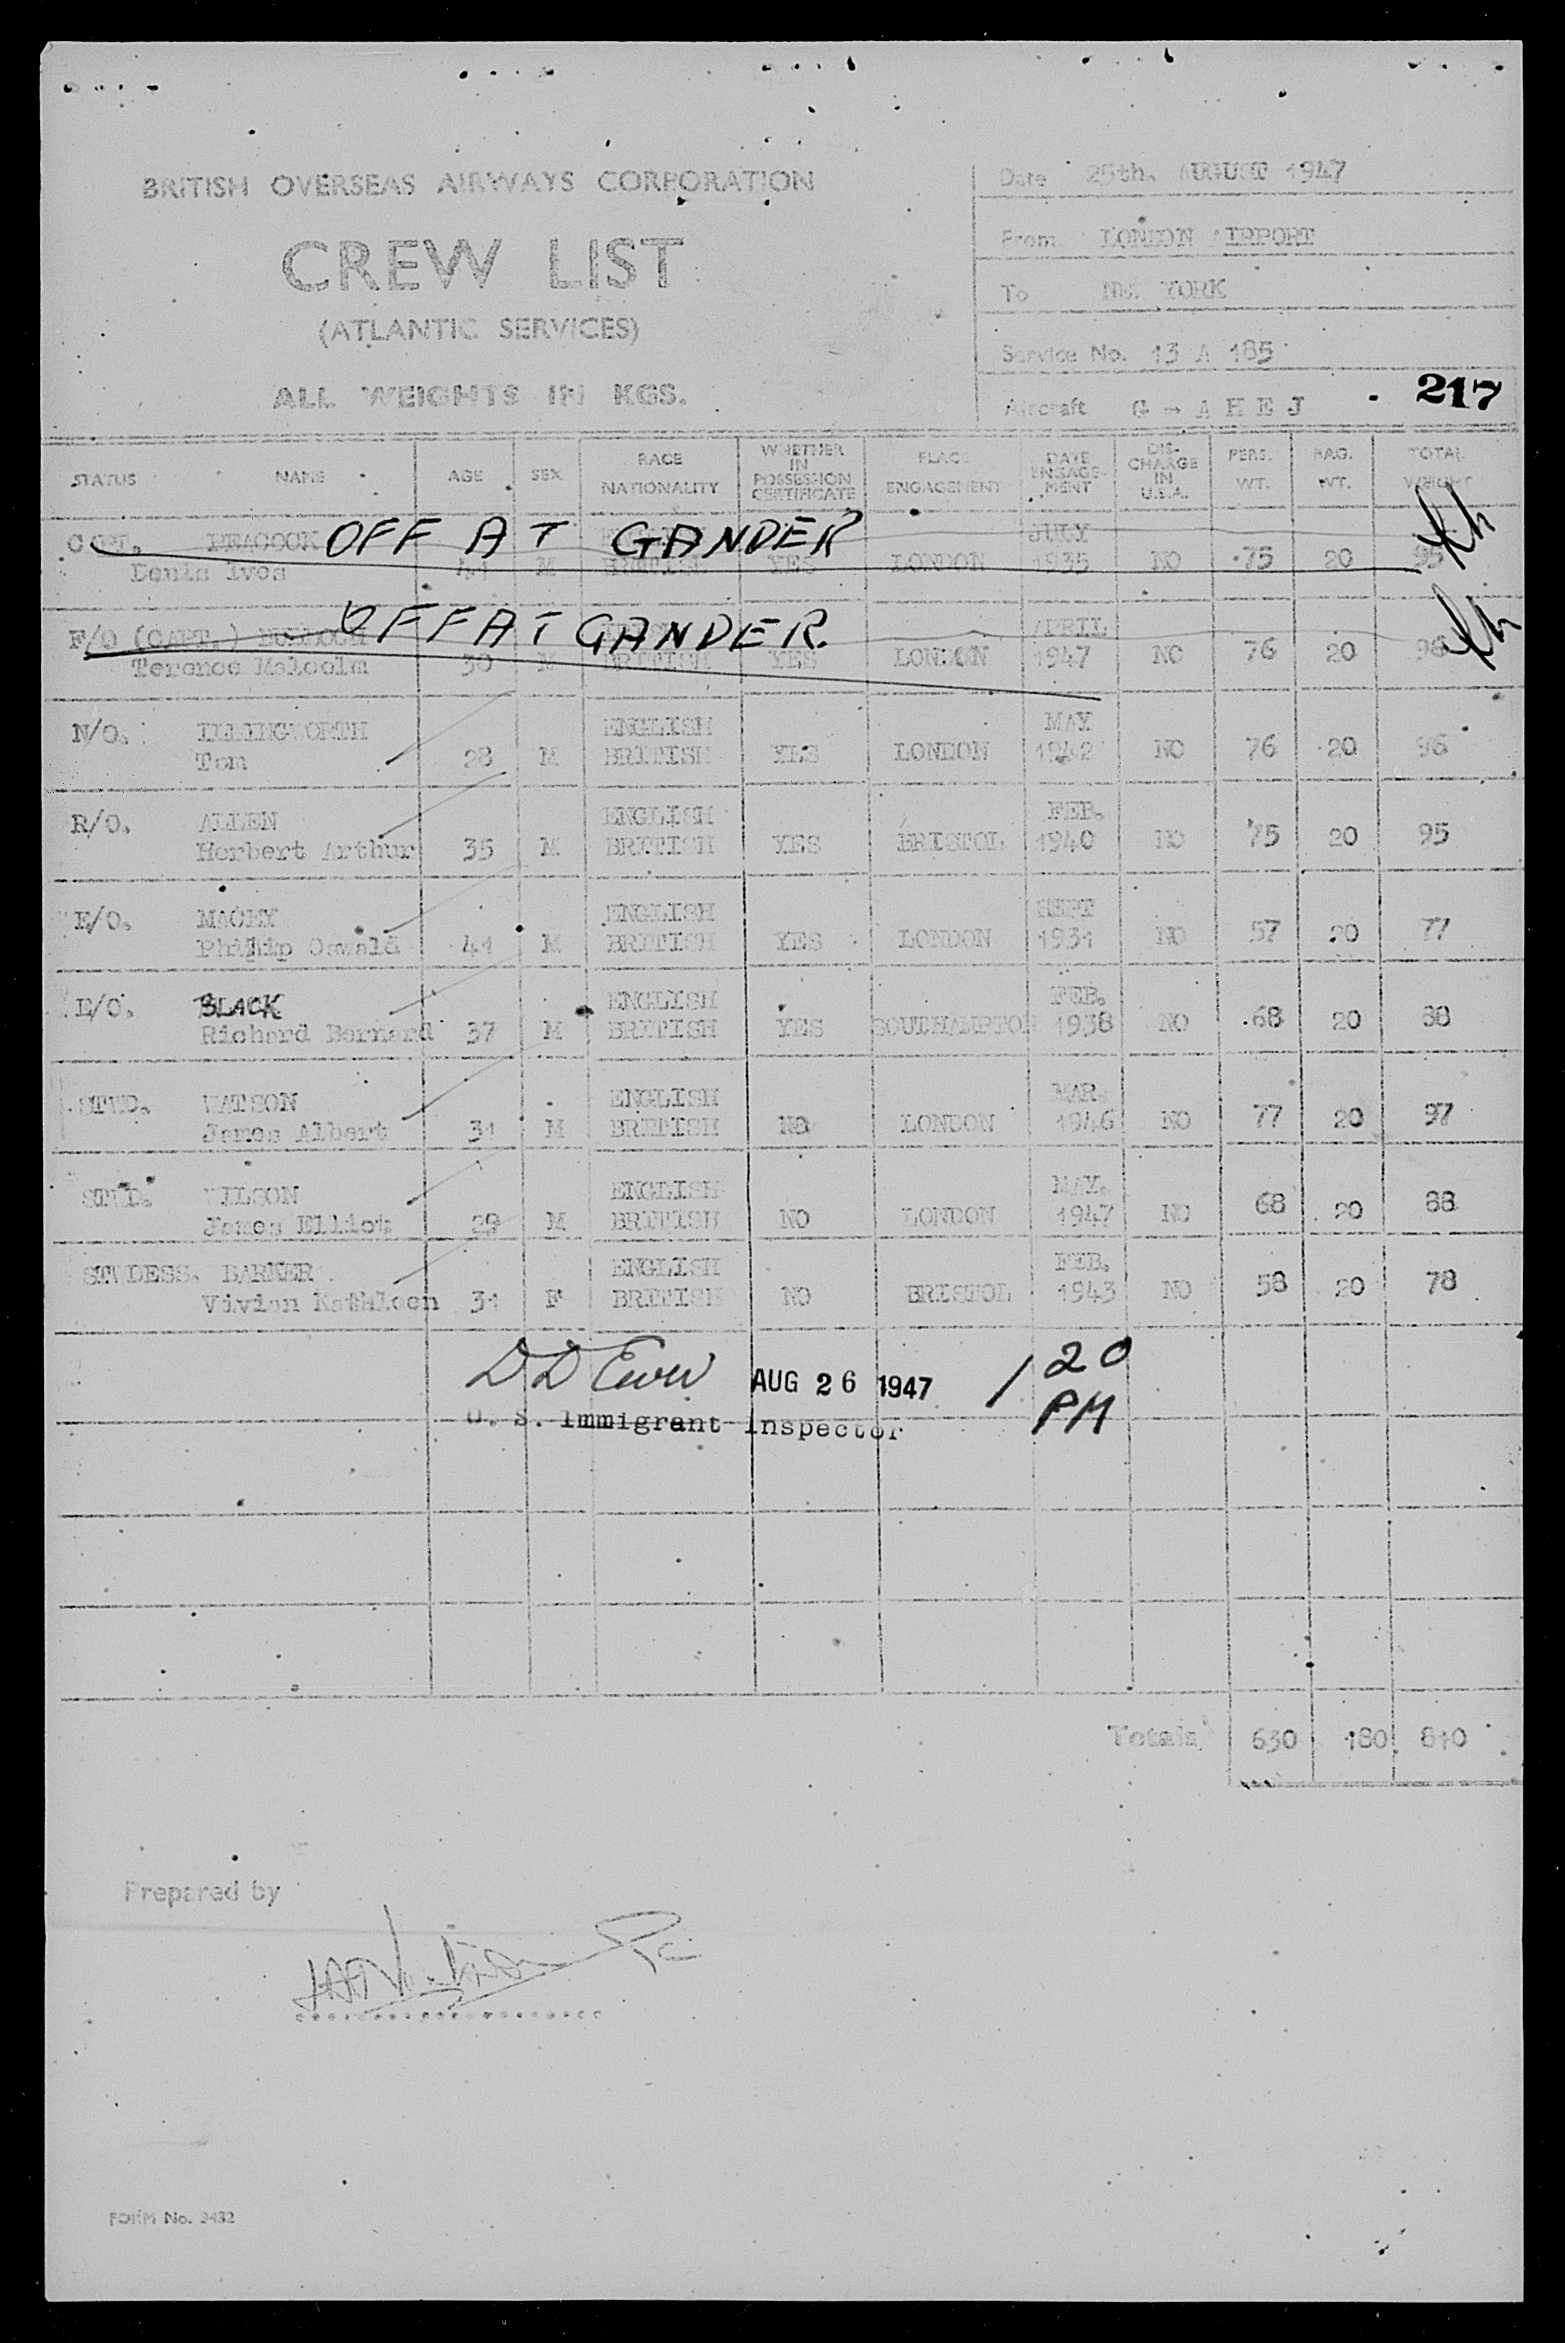 BRITISH OVERSEAS AIRWAYS CORPORATION
CREW LIST
(ATLANTIC SERVICES)
ALL WEIGHTS IN KGS.
Date 25th. AUGUST 1947
From LONDON AIRPORT
To NEW YORK
Service No. 13 A 185
Aircraft G - A H E J
217
STATUS NAME AGE SEX RACE NATIONALITY WHETHER IN POSSESSION CERTIFICATE PLACE ENGAGEMENT DATE ENGAGEMENT DIS-CHARGE IN U.S.A. PERS. WT. BAG. WT. TOTAL WEIGHT
CAPT. PEACOCK OFF AT GANDER JULY
Denis Ives 41 M BRITISH YES LONDON 1935 NO 75 20 95
F/O (CAPT.) OFF AT GANDER. APRIL
Terence Malcolm 30 M BRITISH YES LONDON 1947 NO 76 20 96
N/O. ILLINGWORTH ENGLISH MAY
Tom 28 M BRITISH YES LONDON 1942 NO 76 20 96
R/O. ALLEN ENGLISH FEB.
Herbert Arthur 35 M BRITISH YES BRISTOL 1940 NO 75 20 95
E/O. MACEY ENGLISH SEPT
Philip Oswald 41 M BRITISH YES LONDON 1931 NO 57 20 77
E/O. BLACK ENGLISH FEB.
Richard Bernard 37 M BRITISH YES SOUTHAMPTON 1938 NO 68 20 88
STWD. WATSON ENGLISH MAR.
James Albert 31 M BRITISH NO LONDON 1946 NO 77 20 97
STWD. WILSON ENGLISH MAY.
James Elliot 29 M BRITISH NO LONDON 1947 NO 68 20 88
STWDESS. BARKER ENGLISH FEB.
Vivien Kathleen 31 F BRITISH NO BRISTOL 1943 NO 58 20 78
AUG 26 1947 1 20 PM
U. S. Immigrant Inspector
Totals 630 180 810
Prepared by
FORM No. 3432